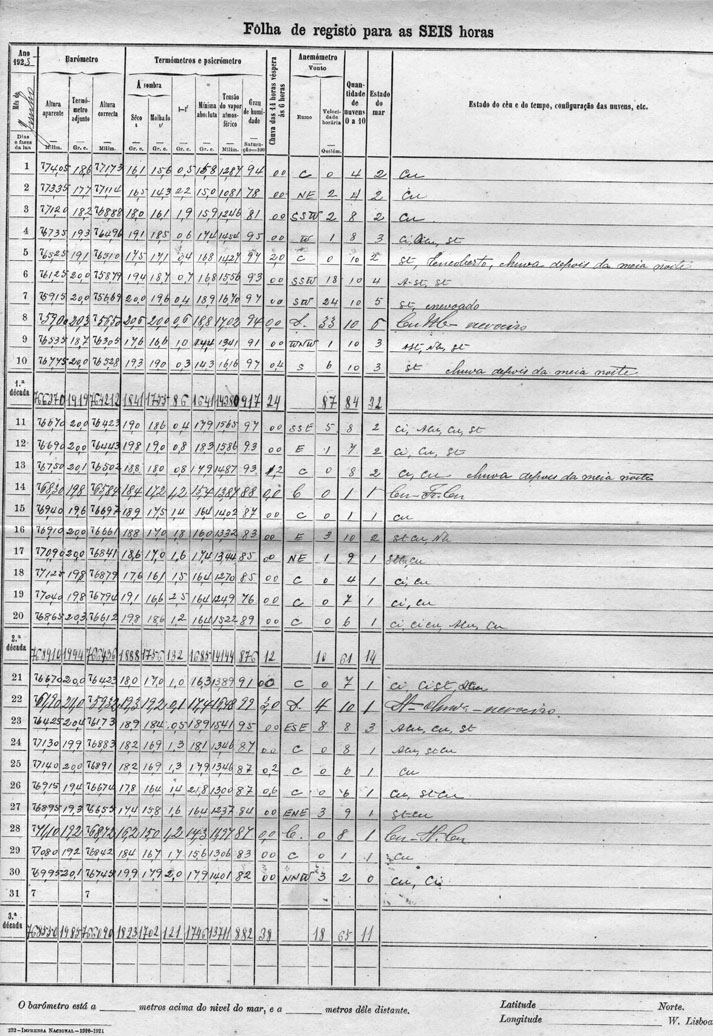 Folha de registo para as SEIS horas
Ano 192
Barómetro
Termómetros e psicrómetro
Anemómetro
Mês de Junho
Á sombra
Vento
Dias e fases da lua
Altura aparente
Termómetro adjunto
Altura correcta
Sêco t
Molhado t'
t-t'
Mínima absoluta
Tensão do vapor atmosférico
Grau de humidade
Chuva das 14 horas véspera ás 6 horas
Rumo
Velocidade horária
Quantidade de nuvens 0 a 10
Estado do mar
Estado do céu e do tempo, configuração das nuvens, etc.
Milim. Gr. c. Milim. Gr. c. Gr. c. Gr. c. Gr. c. Milim. Saturação=100 Quilóm.
1 77405 18,6 77173 161 156 0,5 1287 94 00 C 0 4 2 Cu
2 77335 177 77114 16,5 143 22 15,0 1081 78 00 NE 2 4 2 Cu
3 77120 182 76888 180 161 1,9 159 1246 81 00 SSW 2 8 2 Cu
4 76735 193 76496 191 185 06 174 95 00 W 1 8 3
5 76525 191 175 171 04 168 1427 97 20 C 0 10 2 st, chuva depois da meia noite
6 76125 200 75879 194 187 0,7 168 1556 93 00 SSW 18 10 4 A-st, st
7 75915 200 75669 200 196 04 189 1670 97 00 SW 24 10 5 st, enevoado
8 203 206 200 0,6 18,8 1702 94 0,0 33 10 nevoeiro
9 76535 187 76305 176 166 10 1341 91 00 WNW 1 10 3
10 76775 200 76528 193 190 03 143 1616 97 04 S 6 10 3 st chuva depois da meia noite
1.ª década 1841 1755 86 1641 917 24 87 84 32
11 76670 200 76423 190 186 04 179 1565 97 00 SSE 5 8 2 ci, Acu, cu, st
12 76690 200 76443 198 190 08 183 1586 93 00 E 1 7 2 ci, cu, st
13 76750 201 76502 188 180 08 179 1487 93 C 0 8 2 cu chuva depois da meia noite
14 76830 198 76584 184 172 1,2 154 1387 88 0,0 C 0 1 1 Cu-Fr-Cu
15 76940 196 76697 189 175 14 164 1402 87 00 C 0 1 1 cu
16 76910 200 76661 188 170 18 160 1332 83 00 E 3 10 2 st cu, Nb
17 77090 200 76841 186 170 1,6 174 1344 85 00 NE 1 9 1
18 77128 198 76879 17,6 161 15 164 1270 85 00 C 0 4 1 ci, cu
19 77040 198 76794 191 166 25 164 1249 76 00 C 0 7 1 ci, cu
20 76865 203 76612 198 186 12 164 1522 89 00 C 0 6 1 ci cicu, Acu, cu
2.ª década 768910 1994 766436 1888 1756 132 1685 14144 876 12 10 61 14
21 76670 200 76423 180 170 1,0 163 1389 91 00 C 0 7 1
22 192 0,1 174 99 4 10 1 nevoeiro
23 76425 204 76173 189 184 05 189 1541 95 00 ESE 8 8 3 Acu, cu, st
24 77130 199 76883 182 169 1,3 181 1346 87 00 C 0 8 1 Acu, st cu
25 77140 200 76891 182 169 1,3 179 1346 87 02 C 0 6 1 cu
26 76915 194 76674 178 164 14 21,8 1300 87 06 C 0 6 1 cu, st-cu
27 76895 193 76655 174 158 1,6 164 1237 84 00 ENE 3 9 1 st-cu
28 192 162 150 1,2 143 87 0,0 C. 0 8 1
29 77080 192 76842 184 167 17 156 1306 83 00 C 0 1 1 cu
30 76995 20,1 76745 199 179 2,0 179 1401 82 00 NNW 3 2 0 cu, Ci
31 7 7
3.ª década 1985 1823 1702 121 1746 13711 882 38 18 65 11
O barómetro está a ______ metros acima do nivel do mar, e a ______ metros dêle distante.
Latitude ______ Norte.
Longitude ______ W. Lisboa
272—IMPRENSA NACIONAL—1920-1921